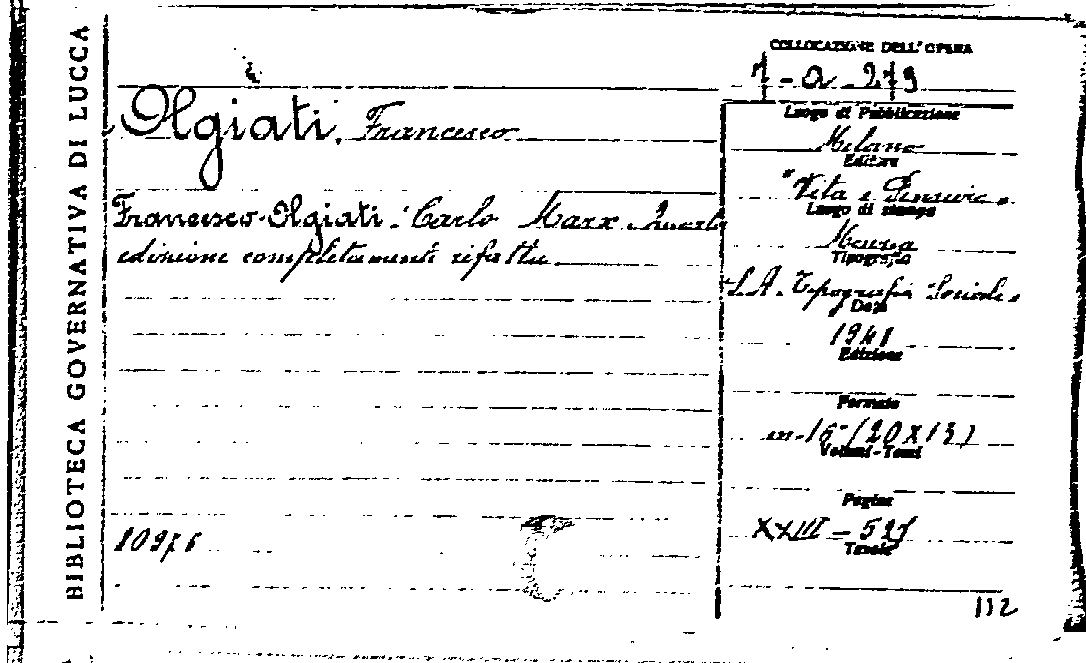 BIBLIOTECA GOVERNATIVA DI LUCCA
COLLOCAZIONE DELL'OPERA
7-a-279
Olgiati, Francesco
Francesco Olgiati: Carlo Marx. Quarta
edizione completamente rifatta.
10976
Luogo di Pubblicazione
Milano
Editore
"Vita e Pensiero"
Luogo di stampa
Monza
Tipografia
S.A. Tipografia Sociale
Data
1941
Edizione
Formato
in-16° (20x13)
Volumi-Tomi
Pagine
XXIII-527
Tavole
112